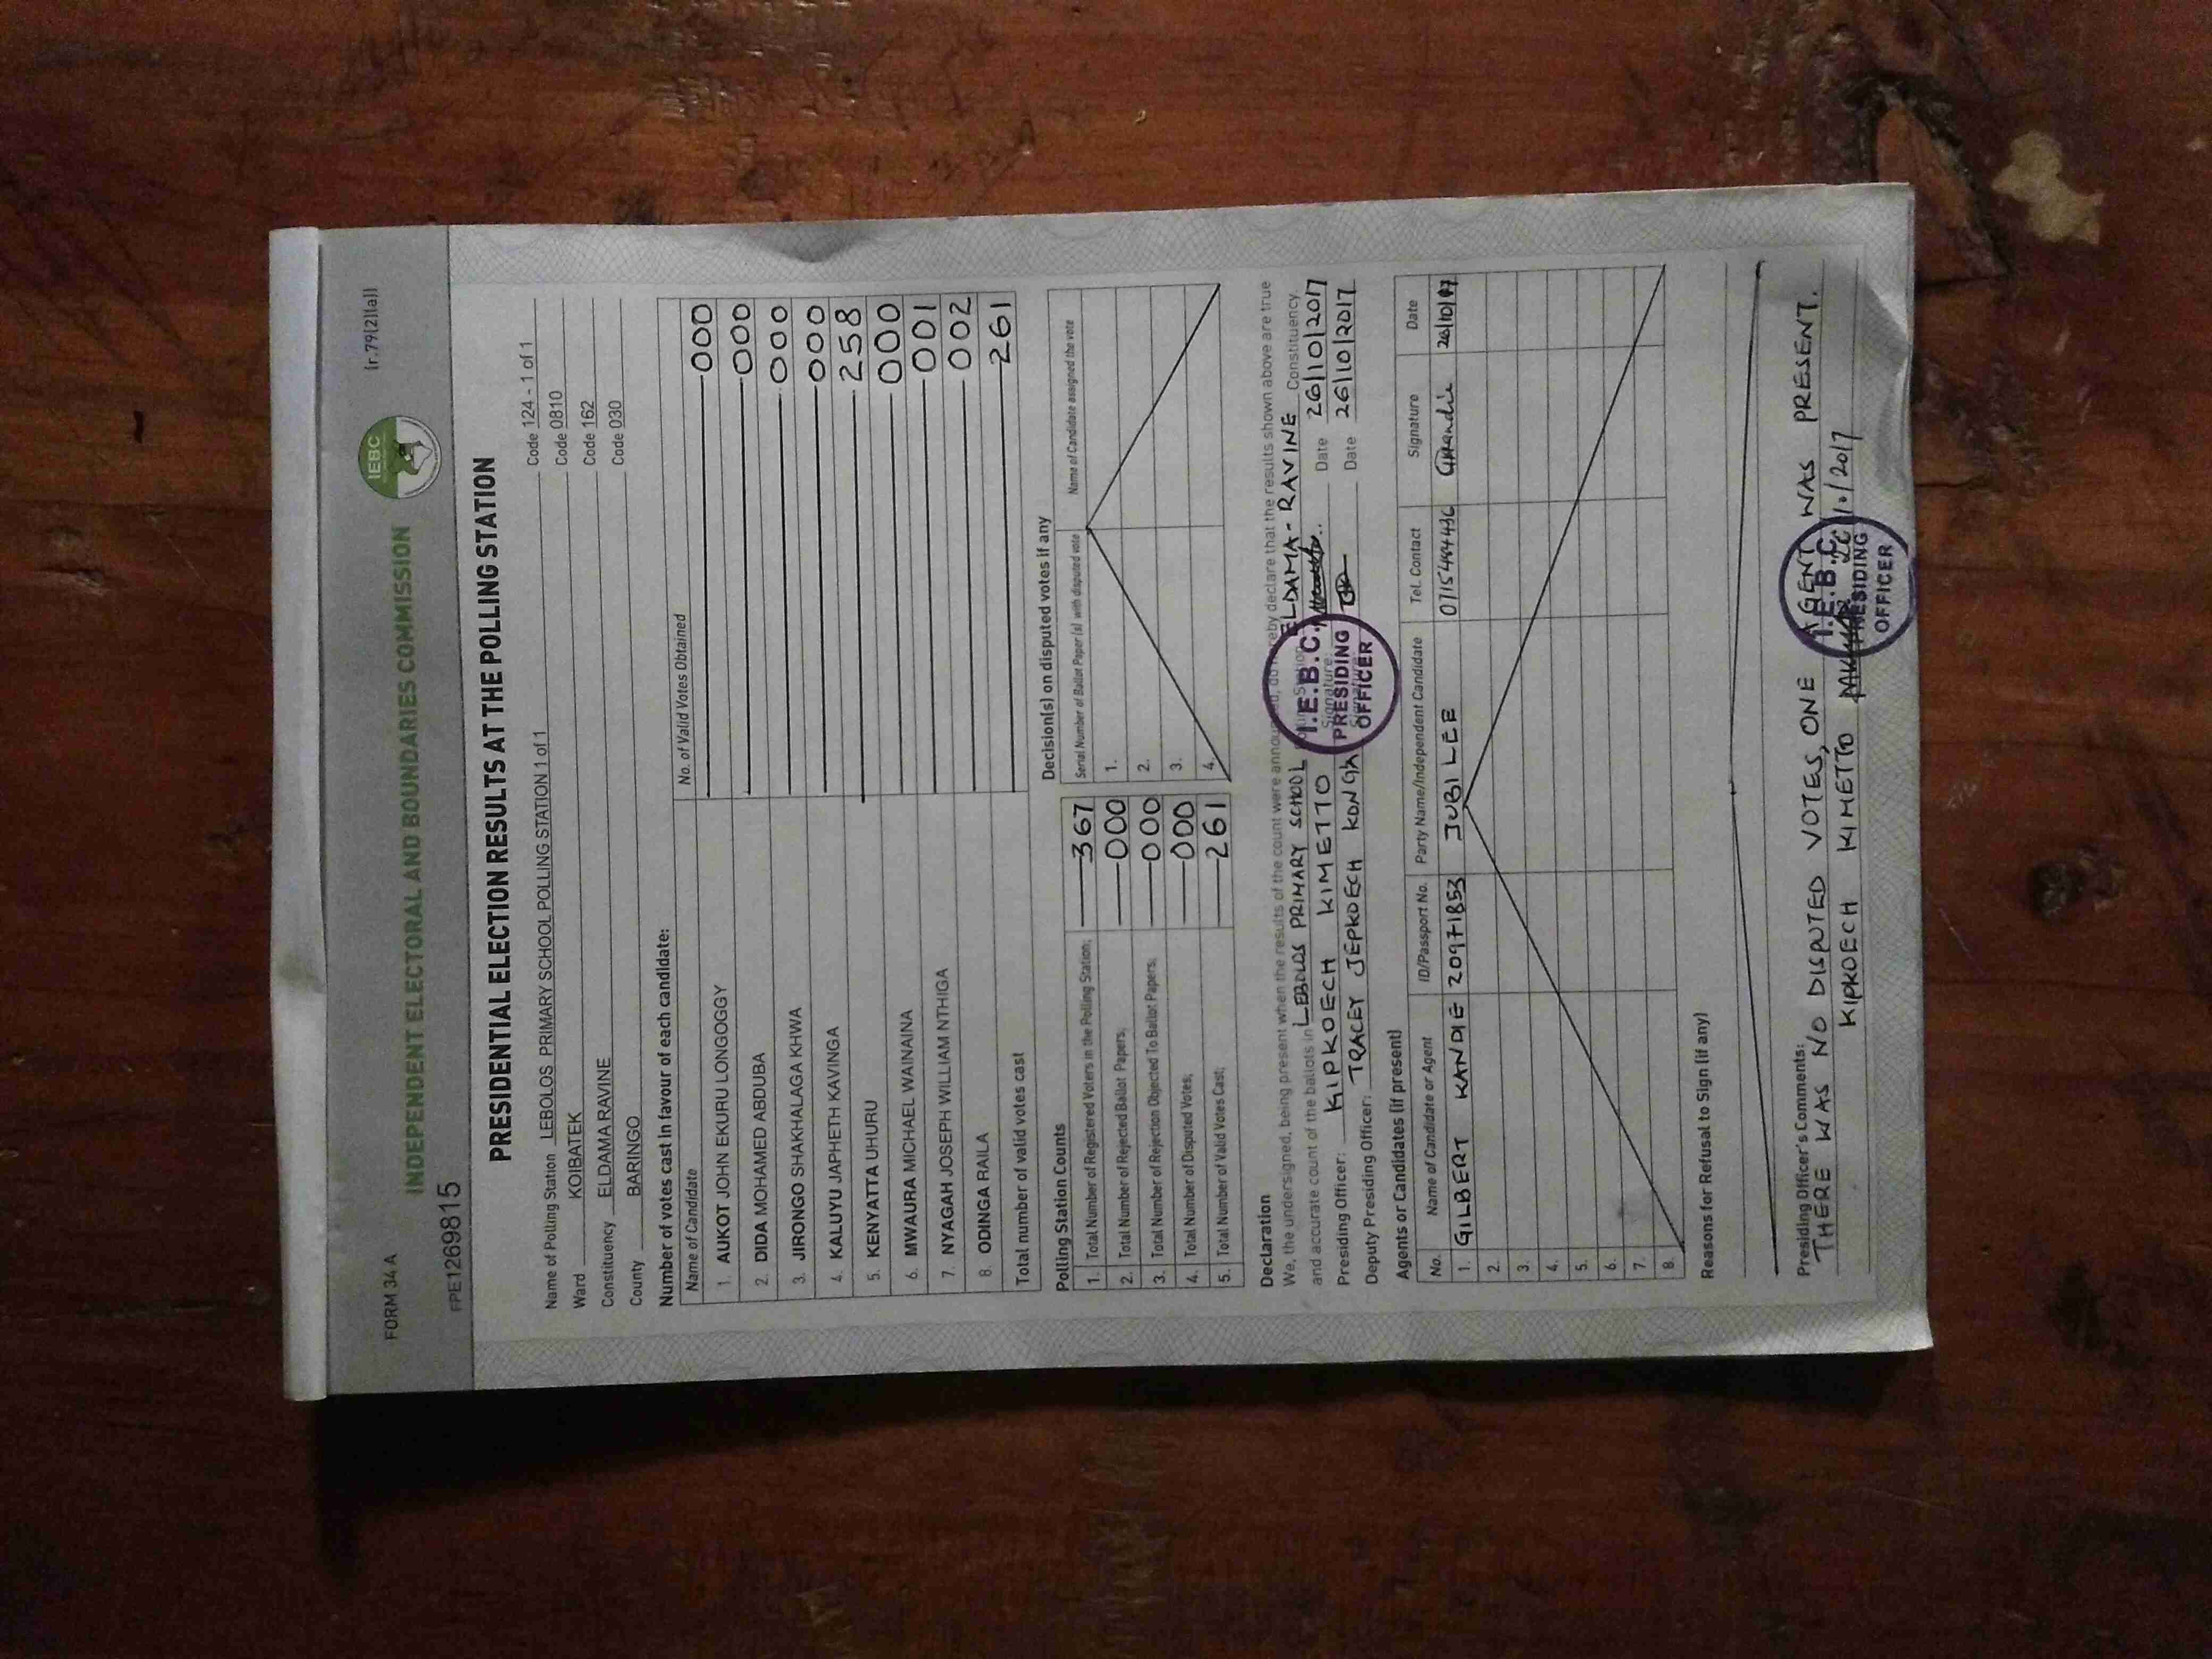 FORM 34 A
(r.79(2)(a))
INDEPENDENT ELECTORAL AND BOUNDARIES COMMISSION
IEBC
FPE1269815
PRESIDENTIAL ELECTION RESULTS AT THE POLLING STATION
Name of Polling Station LEBOLOS PRIMARY SCHOOL POLLING STATION 1 of 1 Code 124 - 1 of 1
Ward KOIBATEK Code 0810
Constituency ELDAMA RAVINE Code 162
County BARINGO Code 030
Number of votes cast in favour of each candidate:
Name of Candidate No. of Valid Votes Obtained
1. AUKOT JOHN EKURU LONGOGGY 000
2. DIDA MOHAMED ABDUBA 000
3. JIRONGO SHAKHALAGA KHWA 000
4. KALUYU JAPHETH KAVINGA 000
5. KENYATTA UHURU 258
6. MWAURA MICHAEL WAINAINA 000
7. NYAGAH JOSEPH WILLIAM NTHIGA 001
8. ODINGA RAILA 002
Total number of valid votes cast 261
Polling Station Counts
1. Total Number of Registered Voters in the Polling Station; 367
2. Total Number of Rejected Ballot Papers; 000
3. Total Number of Rejection Objected To Ballot Papers; 000
4. Total Number of Disputed Votes; 000
5. Total Number of Valid Votes Cast; 261
Decision(s) on disputed votes if any
Serial Number of Ballot Paper(s) with disputed vote Name of Candidate assigned the vote
1.
2.
3.
4.
Declaration
We, the undersigned, being present when the results of the count were announced, do hereby declare that the results shown above are true
and accurate count of the ballots in LEBOLOS PRIMARY SCHOOL Polling Station, ELDAMA - RAVINE Constituency.
Presiding Officer: KIPKOECH KIMETTO Signature: Date 26/10/2017
Deputy Presiding Officer: TRACEY JEPKOECH KONGA Signature: Date 26/10/2017
I.E.B.C.
PRESIDING
OFFICER
Agents or Candidates (if present)
No. Name of Candidate or Agent ID/Passport No. Party Name/Independent Candidate Tel. Contact Signature Date
1. GILBERT KANDIE 20971853 JUBILEE
2.
3.
4.
5.
6.
7.
8.
Reasons for Refusal to Sign (if any)
Presiding Officer's Comments:
THERE WAS NO DISPUTED VOTES, ONE AGENT WAS PRESENT.
KIPKOECH KIMETTO
I.E.B.C.
PRESIDING
OFFICER